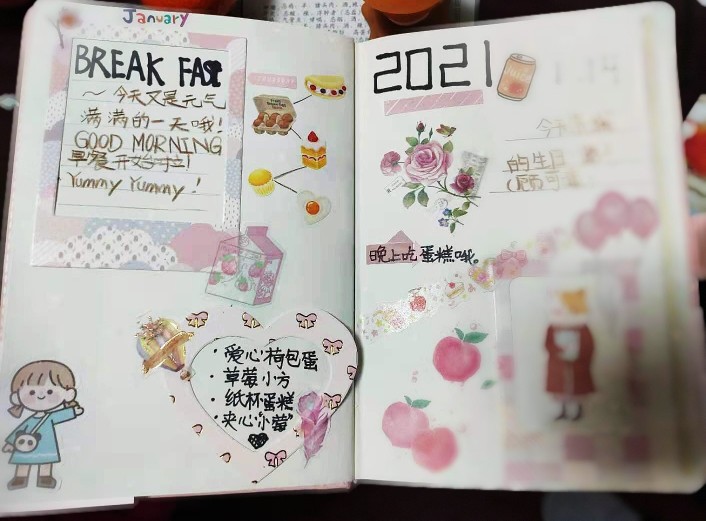 January
BREAK FAST
~今天又是元气
满满的一天哦!
GOOD MORNING
早餐开始咔!
Yummy Yummy!
·爱心荷包蛋
·草莓小方
·纸杯蛋糕
·夹心"小莓"
2021
今天
的生日
晚上吃蛋糕哦。